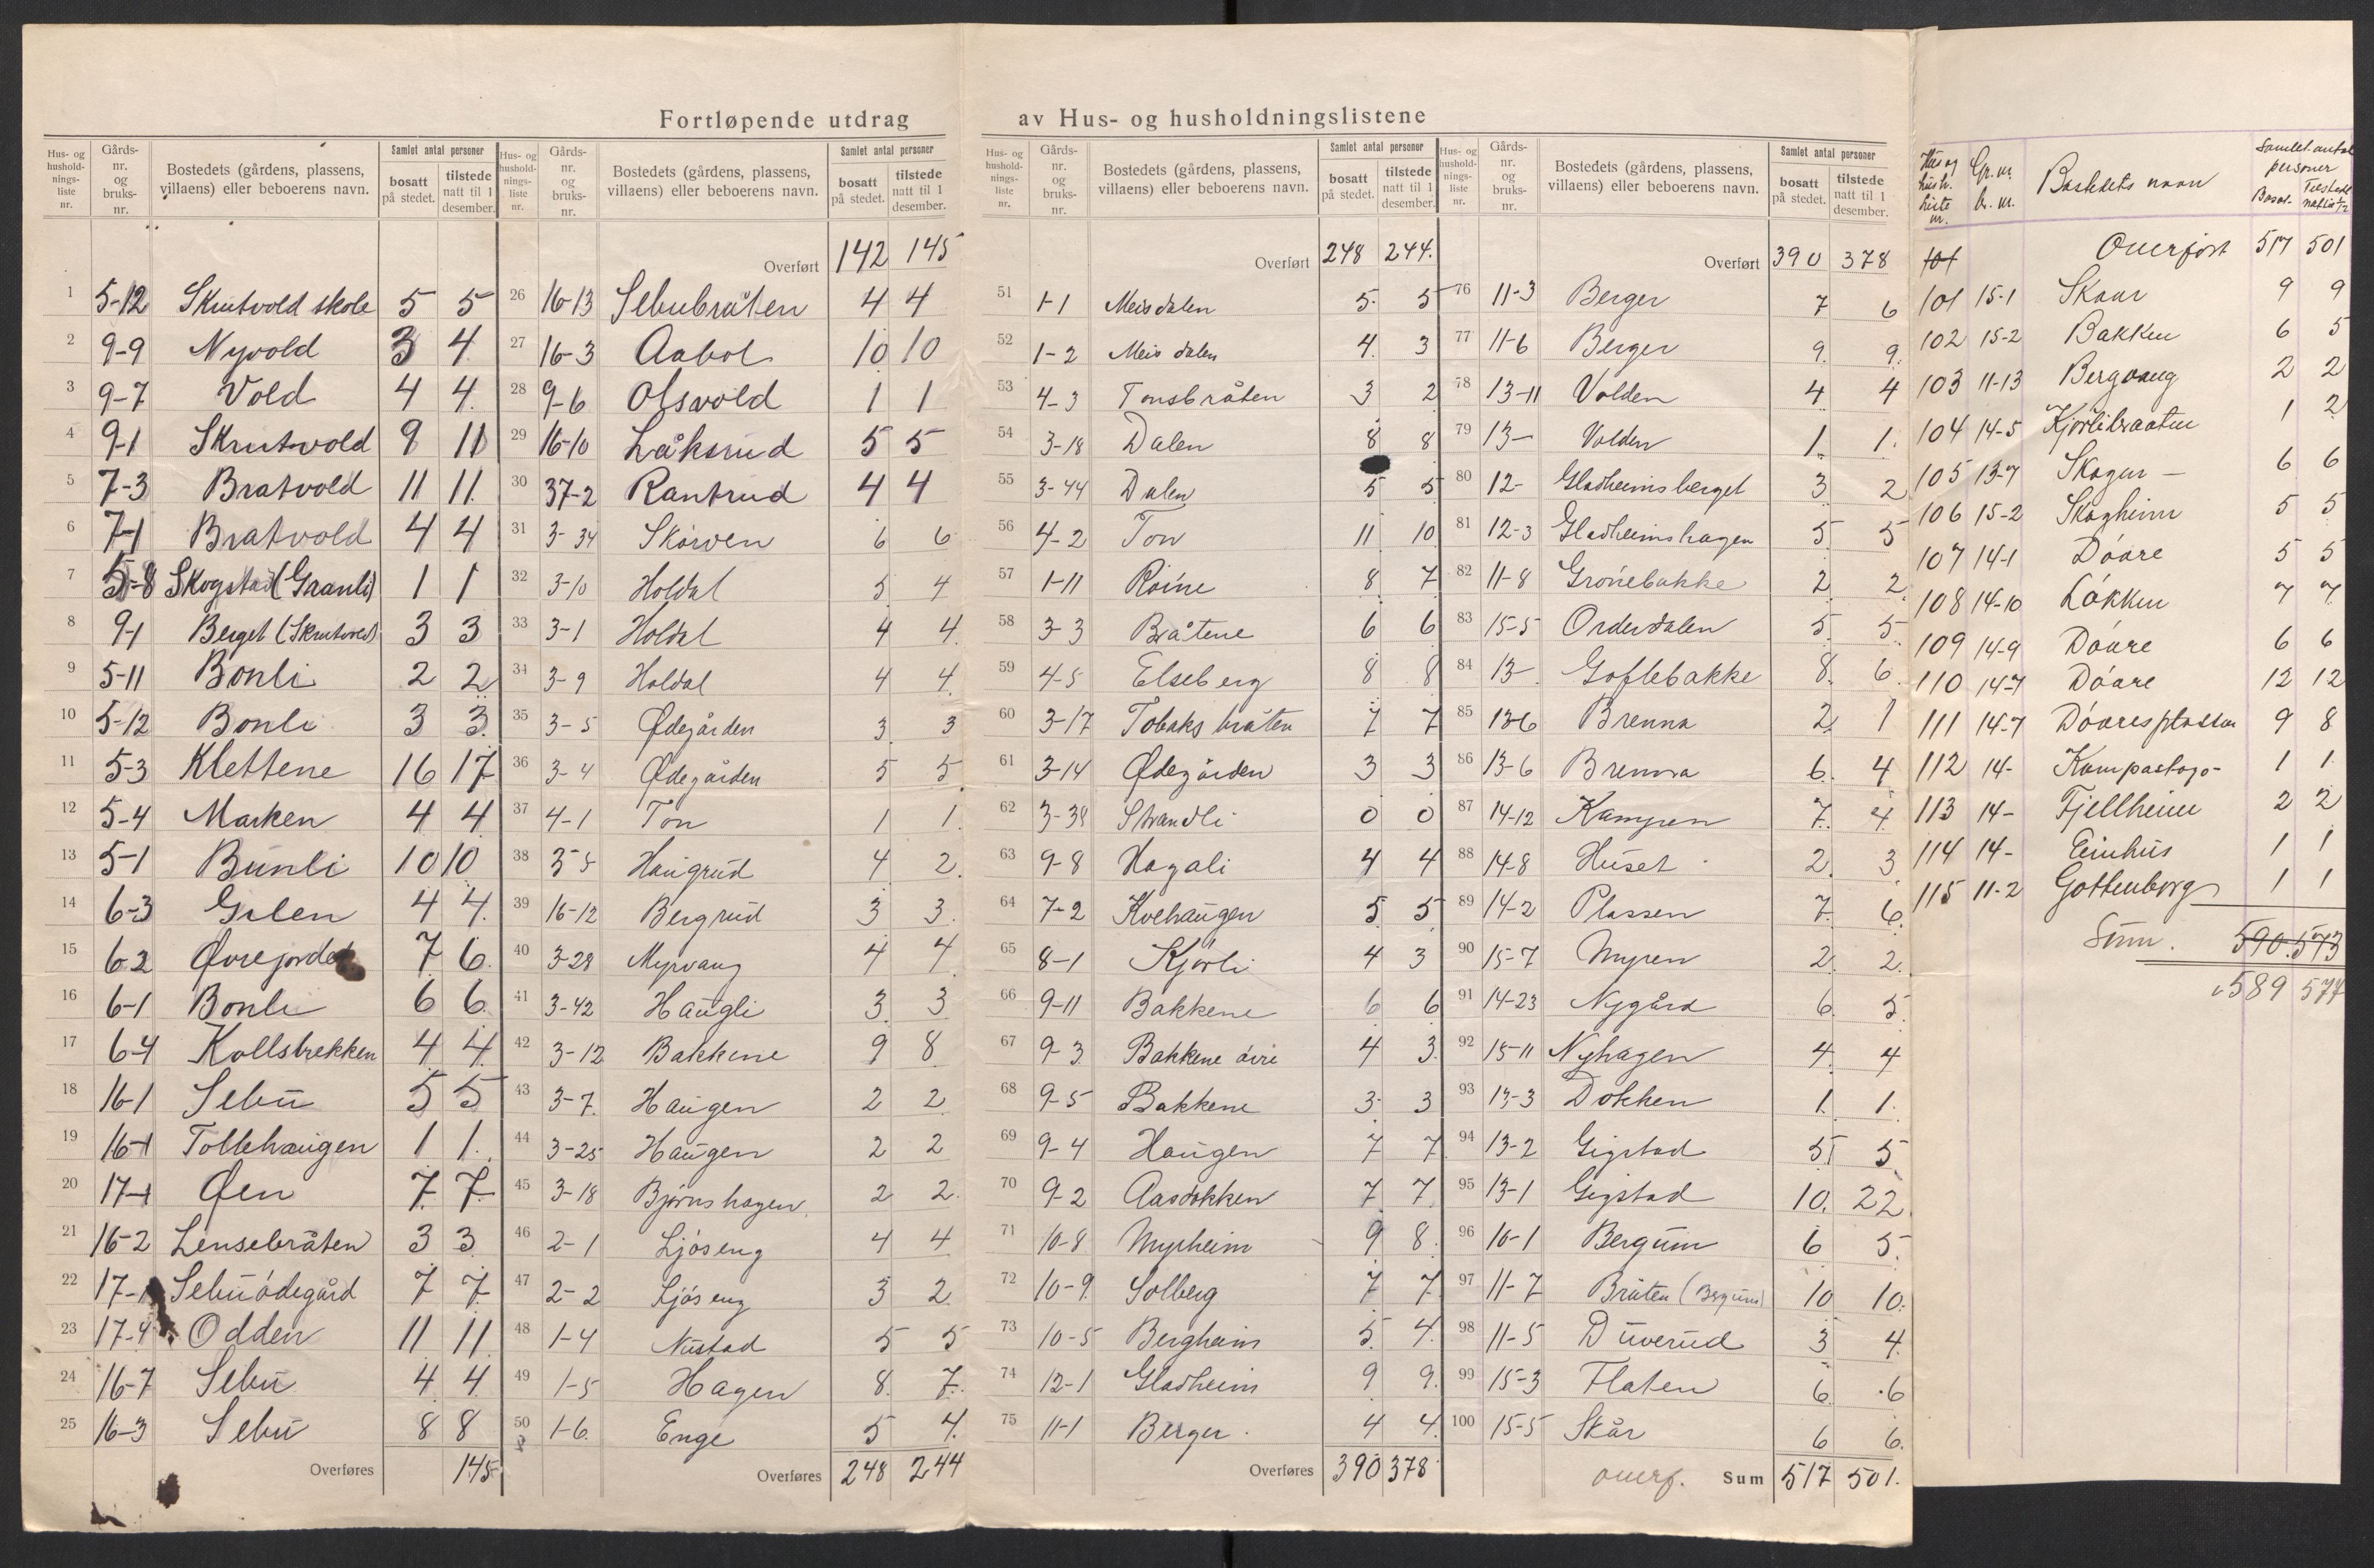 Fortløpende utdrag av Hus- og husholdningslistene
Hus- og husholdningsliste nr. Gårds- nr. og bruks- nr. Bostedets (gårdens, plassens, villaens) eller beboerens navn. Samlet antal personer bosatt på stedet. tilstede natt til 1 desember.
1 5-12 Skrutvold skole 5 5
2 9-9 Nyvold 3 4
3 9-7 Vold 4 4
4 9-1 Skrutvold 9 11
5 7-3 Bratvold 11 11
6 7-1 Bratvold 4 4
7 5-8 Skogstad (Granli) 1 1
8 9-1 Berget (Skrutvold) 3 3
9 5-11 Bonli 2 2
10 5-12 Bonli 3 3
11 5-3 Klettene 16 17
12 5-4 Marken 4 4
13 5-1 Bunli 10 10
14 6-3 Gilen 4 4
15 6-2 Øvrejordet 7 6
16 6-1 Bonli 6 6
17 6-4 Kollstrekken 4 4
18 16-1 Sebu 5 5
19 16-1 Tollehaugen 1 1
20 17-1 Øen 7 7
21 16-2 Lensebråten 3 3
22 17-1 Sebuødegård 7 7
23 17-4 Odden 11 11
24 16-7 Sebu 4 4
25 16-3 Sebu 8 8
Overføres 145
Hus- og husholdningsliste nr. Gårds- nr. og bruks- nr. Bostedets (gårdens, plassens, villaens) eller beboerens navn. Samlet antal personer bosatt på stedet. tilstede natt til 1 desember.
Overført 142 145
26 16-13 Sebubråten 4 4
27 16-3 Aabol 10 10
28 9-6 Olsvold 1 1
29 16-10 Låksrud 5 5
30 37-2 Rantrud 4 4
31 3-34 Skörven 6 6
32 3-10 Holdal 5 4
33 3-1 Holdal 4 4
34 3-9 Holdal 4 4
35 3-5 Ødegården 3 3
36 3-4 Ødegården 5 5
37 4-1 Ton 1 1
38 3-5 Haugrud 4 2
39 16-12 Bergrud 3 3
40 3-28 Myrvang 4 4
41 3-42 Haugli 3 3
42 3-12 Bakkene 9 8
43 3-7 Haugen 2 2
44 3-25 Haugen 2 2
45 3-18 Björnshagen 2 2
46 2-1 Ljöseng 4 4
47 2-2 Ljöseng 3 2
48 1-4 Nustad 5 5
49 1-5 Hagen 8 7
50 1-6 Enge 5 4
Overføres 248 244
Hus- og husholdningsliste nr. Gårds- nr. og bruks- nr. Bostedets (gårdens, plassens, villaens) eller beboerens navn. Samlet antal personer bosatt på stedet. tilstede natt til 1 desember.
Overført 248 244
51 1-1 Meisdalen 5 5
52 1-2 Meisdalen 4 3
53 4-3 Tonsbråten 3 2
54 3-18 Dalen 8 8
55 3-44 Dalen 5 5
56 4-2 Ton 11 10
57 1-11 Röine 8 7
58 3-3 Bråtene 6 6
59 4-5 Elseberg 8 8
60 3-17 Tobaksbråten 7 7
61 3-14 Ødegården 3 3
62 3-38 Strandli 0 0
63 9-8 Hagali 4 4
64 7-2 Kvehaugen 5 5
65 8-1 Kjörli 4 3
66 9-11 Bakkene 6 6
67 9-3 Bakkene övre 4 3
68 9-5 Bakkene 3 3
69 9-4 Haugen 7 7
70 9-2 Aasdokken 7 7
71 10-8 Myrheim 9 8
72 10-9 Solberg 7 7
73 10-5 Bergheim 5 4
74 12-1 Gladheim 9 9
75 11-1 Berger 4 4
Overføres 390 378
Hus- og husholdningsliste nr. Gårds- nr. og bruks- nr. Bostedets (gårdens, plassens, villaens) eller beboerens navn. Samlet antal personer bosatt på stedet. tilstede natt til 1 desember.
Overført 390 378
76 11-3 Berger 7 6
77 11-6 Berger 9 9
78 13-11 Volden 4 4
79 13- Volden 1 1
80 12- Gladheimsberget 3 2
81 12-3 Gladheimshagen 5 5
82 11-8 Grönebakke 2 2
83 15-5 Orderdalen 5 5
84 13- Goflebakke 8 6
85 13-6 Brenna 2 1
86 13-6 Brenna 6 4
87 14-12 Kampen 7 4
88 14-8 Huset 2 3
89 14-2 Plassen 7 6
90 15-7 Myren 2 2
91 14-23 Nygård 6 5
92 15-11 Nyhagen 4 4
93 13-3 Dokken 1 1
94 13-2 Gigstad 5 5
95 13-1 Gigstad 10 22
96 10-1 Bergum 6 5
97 11-7 Bråten (Bergum) 10 10
98 11-5 Duverud 3 4
99 15-3 Flaten 6 6
100 15-5 Skår 6 6
overf. Sum 517 501
Hus og hush. liste nr. Gr. nr. br. nr. Bostedets navn Samlet antal personer Bosat Tilstede natt til 1/12
101 Overført 517 501
101 15-1 Skaar 9 9
102 15-2 Bakken 6 5
103 11-13 Bergvang 2 2
104 14-5 Kjörlibraaten 1 2
105 13-7 Skogen - 6 6
106 15-2 Skogheim 5 5
107 14-1 Döare 5 5
108 14-10 Lökken 7 7
109 14-9 Döare 6 6
110 14-7 Döare 12 12
111 14-7 Döaresplassen 9 8
112 14- 1 1
113 14- Fjellheim 2 2
114 14- Einhus 1 1
115 11-2 Gottenborg 1 1
Sum. 590 573
589 574